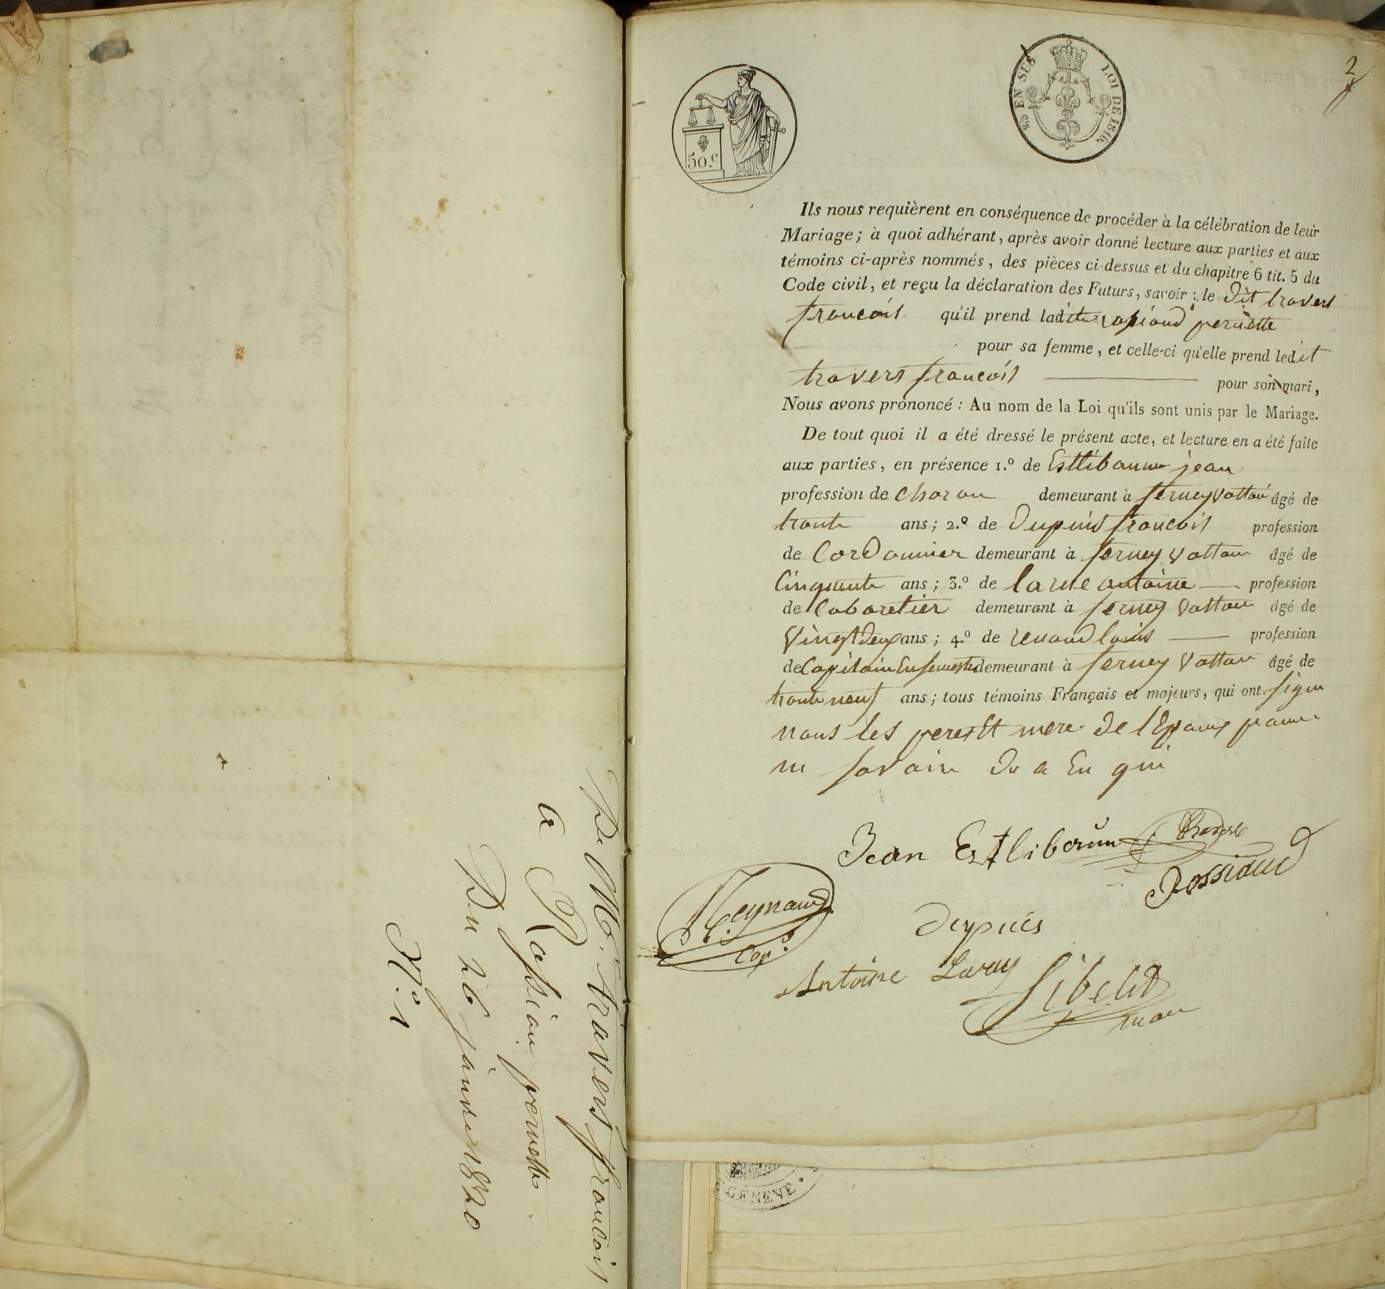 De M.r travers francois
a Rossian pernette
Du 26 janvier 1820
N.o 1
2
50.c
25 EN SUS LOI DE 1816.
Ils nous requièrent en conséquence de procéder à la célébration de leur
Mariage; à quoi adhérant, après avoir donné lecture aux parties et aux
témoins ci-après nommés, des pièces ci-dessus et du chapitre 6 tit. 5 du
Code civil, et reçu la déclaration des Futurs, savoir: le dit travers
francois qu'il prend ladite rossiand pernette
pour sa femme, et celle-ci qu'elle prend ledit
travers francois pour son mari,
Nous avons prononcé: Au nom de la Loi qu'ils sont unis par le Mariage.
De tout quoi il a été dressé le présent acte, et lecture en a été faite
aux parties, en présence 1.o de Esttibaunne jean
profession de charon demeurant à ferney Vottai âgé de
trante ans; 2.o de Dupuis francois profession
de Cordonnier demeurant à ferney Vottair âgé de
Cinquante ans; 3.o de larue antoine profession
de Cabaretier demeurant à ferney Vottair âgé de
Vingt deux ans; 4.o de renand louis profession
de Capitain En semestre demeurant à ferney Vottair âgé de
trante neuf ans; tous témoins Français et majeurs, qui ont signe
nous les pere et mere de l'Epoux pour
ne savoir de a En qui
Jean Estliboum
Rossiaud
Reynaud
Cap.e
Depuis
Antoine Laruy
Sibelit
GENÈVE